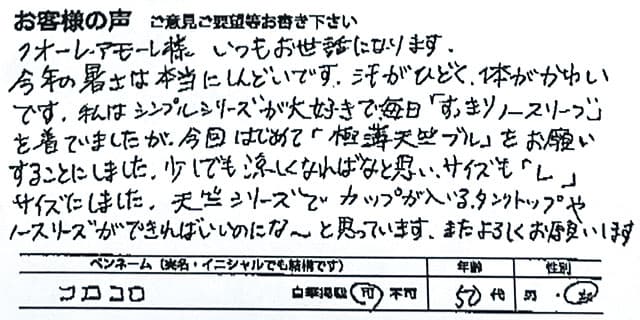 お客様の声 ご意見ご要望等お書き下さい
クオーレ・アモーレ様 いつもお世話になります。
今年の暑さは本当にしんどいです。汗がひどく、体がかわい
です。私はシンプルシリーズが大好きで毎日「すっきりノースリーブ」
を着ていましたが、今回はじめて「極薄天竺ブル」をお願い
することにしました。少しでも涼しくなればなと思い、サイズも「L」
サイズにしました。天竺シリーズでカップが入いる、タンクトップや
ノースリーズができればいいのにな〜と思っています。またよろしくお願いします
ペンネーム(実名・イニシャルでも結構です) 年齢 性別
コロコロ 自筆掲載 可 不可 50代 男・女